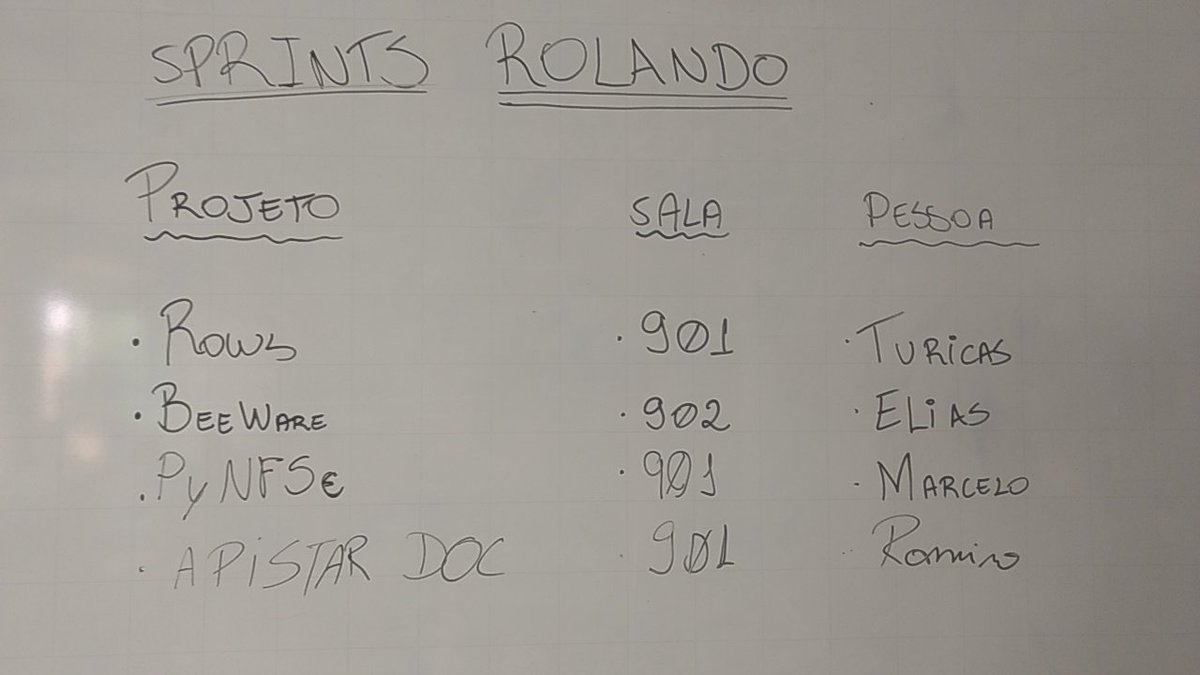 SPRINTS ROLANDO
PROJETO SALA PESSOA
· ROWS · 901 · TURICAS
· BEEWARE · 902 · ELIAS
· PyNFSe · 901 · MARCELO
· APISTAR DOC · 901 · Ramiro